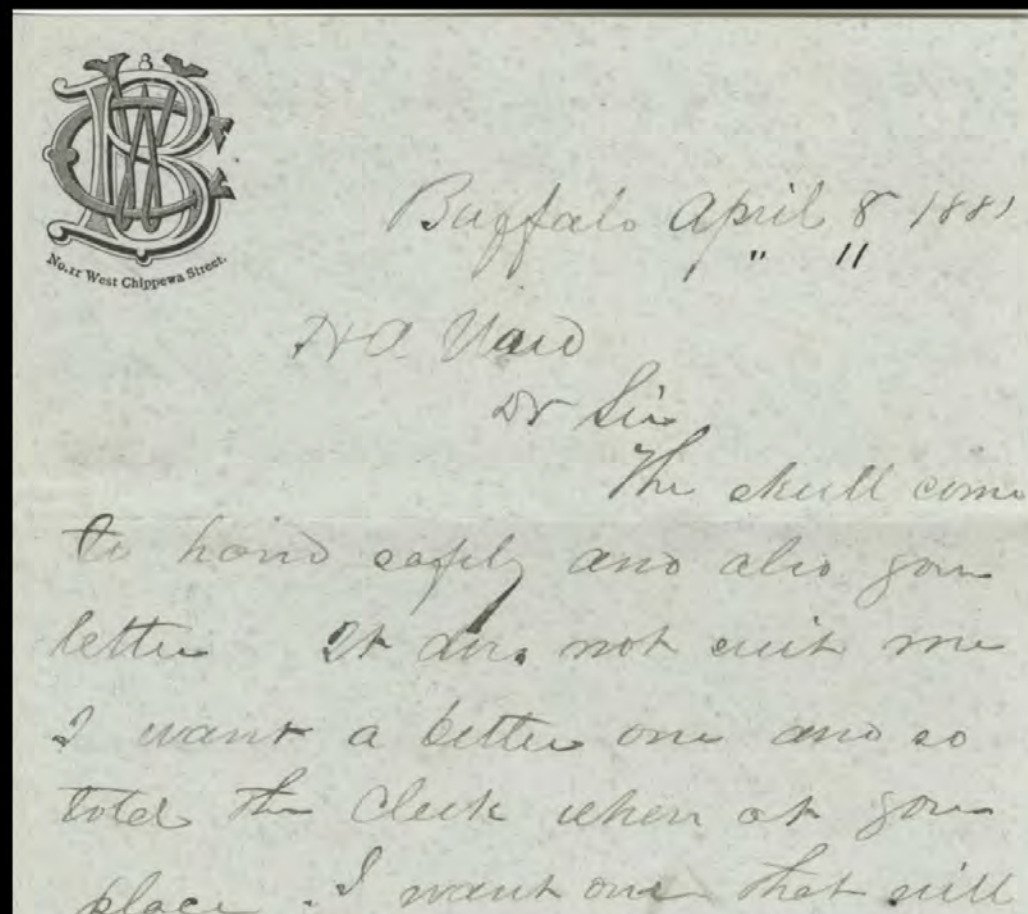 No. 11 West Chippewa Street.
Buffalo April 8 1881
" "
H A Ward
Dr Sir
The skull come
to hand safely and also your
letter It does not suit me
I want a better one and so
told the Clerk when at your
place . I want one that will